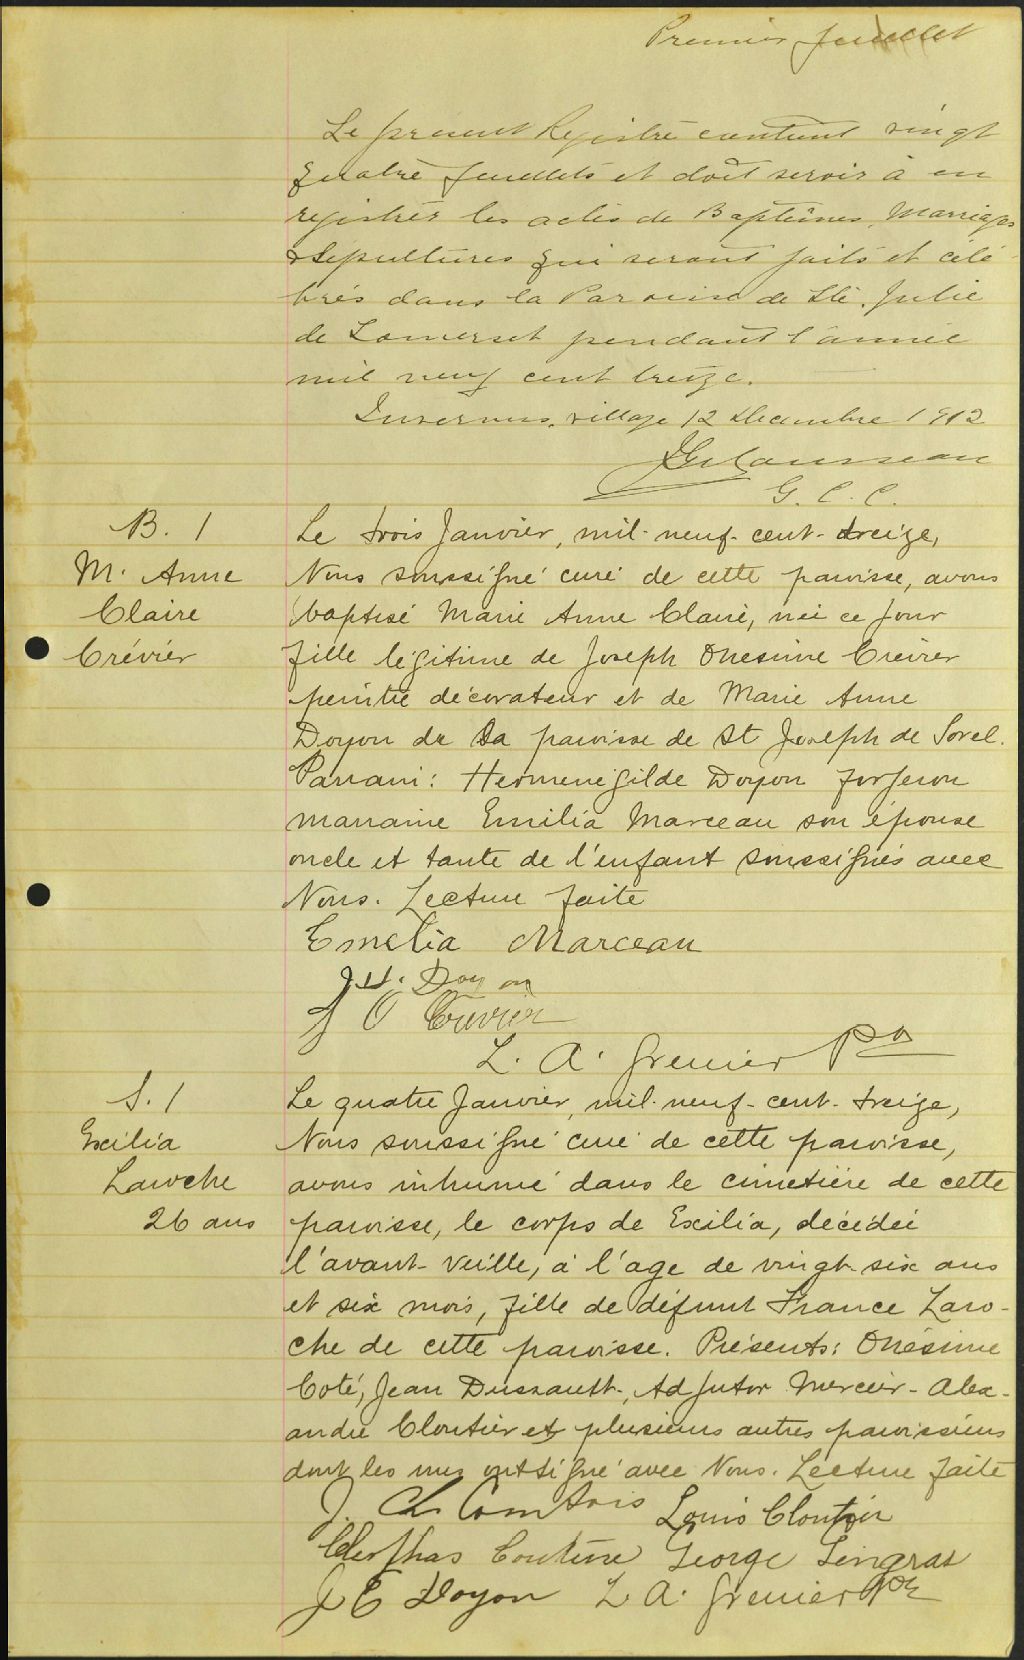 Premier feuillet
Le present Registre contient vingt
quatre feuillets et doit servir à en
registrer les actes de Baptêmes, Marriages
& Sepultures qui seront faits et célé
brés dans la Paroisse de Ste. Julie
de Somerset pendant l'année
mil neuf cent treize.
Inverness, village 12 Decembre 1912
G. C. C.
B. 1
M. Anne
Claire
Crévier
Le trois Janvier, mil-neuf-cent-treize,
Nous soussigné curé de cette paroisse, avons
baptisé Marie Anne Claire, née ce jour
fille légitime de Joseph Onesime Crévier
peintre décorateur et de Marie Anne
Doyon de la paroisse de St Joseph de Sorel.
Parrain: Hermenégilde Doyon forgeron
marraine Emilia Marceau son épouse
oncle et tante de l'enfant soussignés avec
Nous. Lecture faite
Emelia Marceau
J.H. Doyon
J O Crevier
L. A. Grenier Ptre
S. 1
Exilia
Laroche
26 ans
Le quatre Janvier, mil-neuf-cent-treize,
Nous soussigné curé de cette paroisse,
avons inhumé dans le cimetière de cette
paroisse, le corps de Exilia, décédée
l'avant-veille, à l'age de vingt-six ans
et six mois, fille de défunt France Laro-
che de cette paroisse. Présents: Onésime
Coté, Jean Dussault, Adjutor Mercier-Alex-
andre Cloutier et plusieurs autres paroissiens
dont les uns ont signé avec Nous. Lecture faite
J. Ch Comtois Louis Cloutier
Cléophas Couture George Gingras
J E Doyon L A. Grenier Ptre